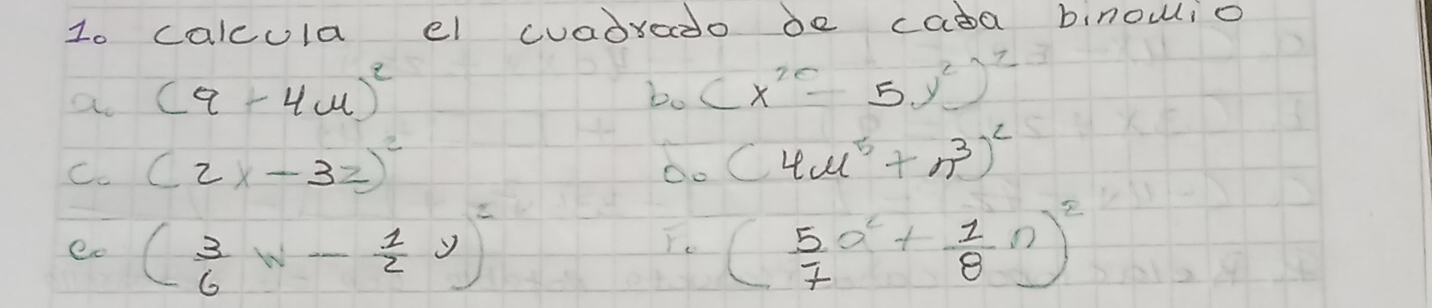 1. calcula el cuadrado de cada binomio
a. (9 - 4m)² b. (x²⁰ - 5y²)²
c. (2x - 3z)² d. (4m⁵ + n³)²
e. (3/6 w - 1/2 y)² f. (5/7 a² + 1/8 n)²